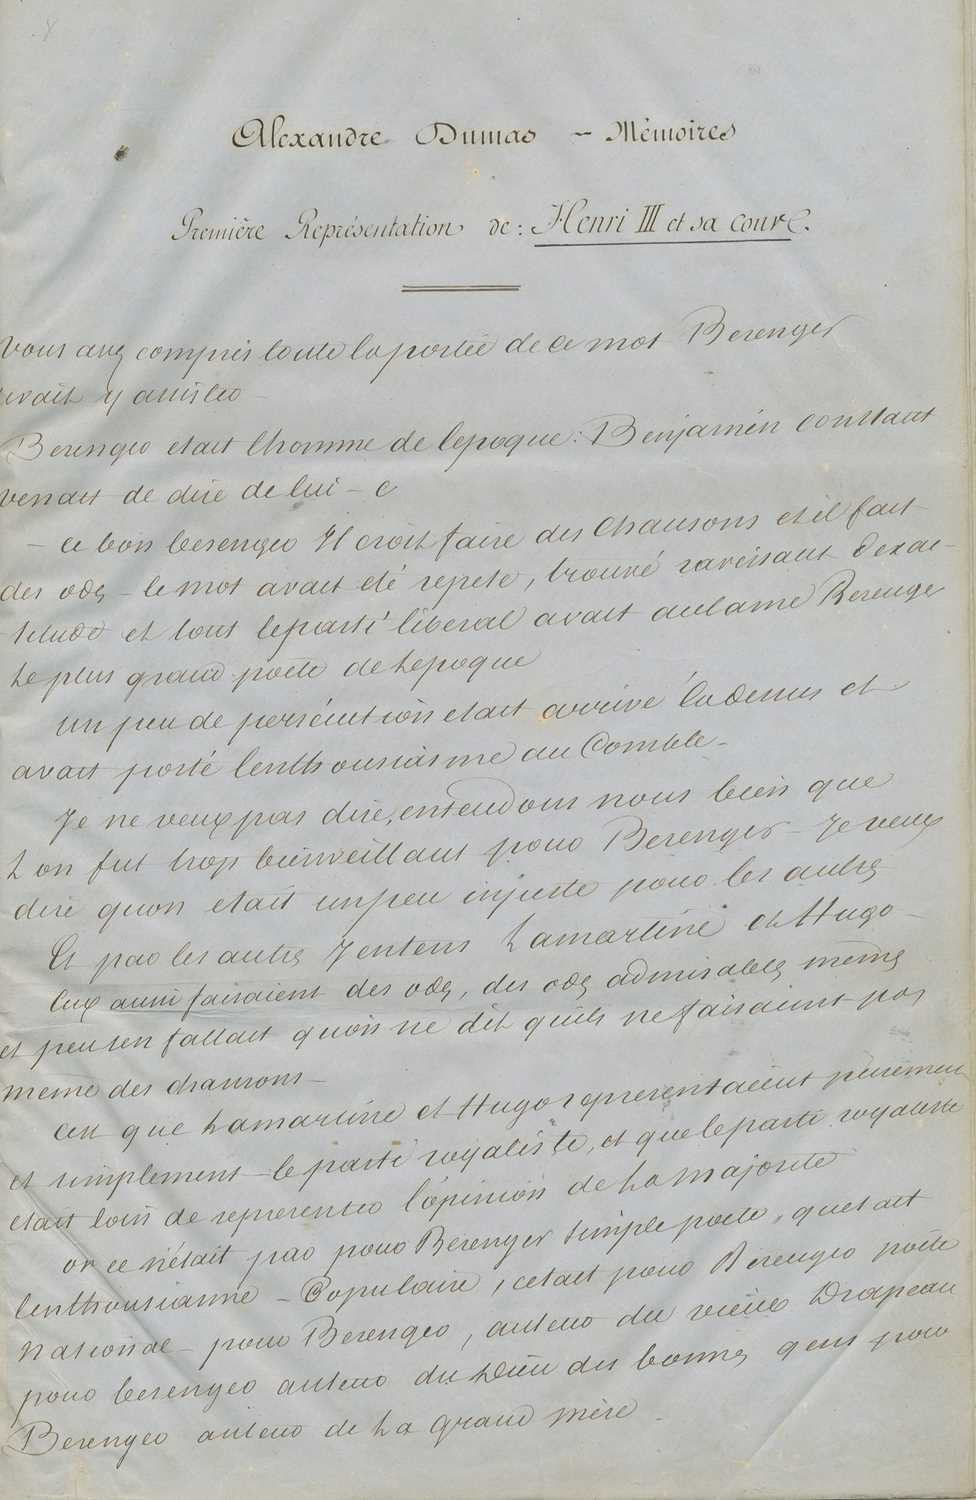 Alexandre Dumas - Mémoires
Première Représentation de: Henri III et sa cour.
Vous avez compris toute la portée de ce mot Berenger
avait y assister
Berenger etait lhomme de lepoque: Benjamin constant
venait de dire de lui - c
- ce bon berenger Il croit faire des Chansons et il fait
des odes - le mot avait eté repete, trouvé ravissant dexac-
titude et tout leparti liberal avait aclamé Berenger
Le plus grand poete de Lepoque
Un peu de persécution etait arrivé ladessus et
avait porté lenthousiasme au Comble -
Je ne veux pas dire, entendons nous bien que
L on fut trop bienveillant pour Berenger - Je veux
dire quon etait unpeu injuste pour les autres
Et par les autres Jentens Lamartine et Hugo -
Eux aussi faisaient des odes, des odes admirables même
et peu sen fallait quon ne dit quils nefaisaient pas
meme des chansons -
Cest que Lamartine et Hugo representaient purement
et simplement - le parti royaliste, et que leparti royaliste
etait loin de representer l'opinion de La majorité
or ce n'était pas pour Berenger simple poete, quetait
lenthousiasme - Populaire, cetait pour Berenger poëte
National - pour Berenger, auteur du vieux Drapeau
pour berenger auteur du Dieu des bonnes gens pour
Berenger auteur de La grand mère -